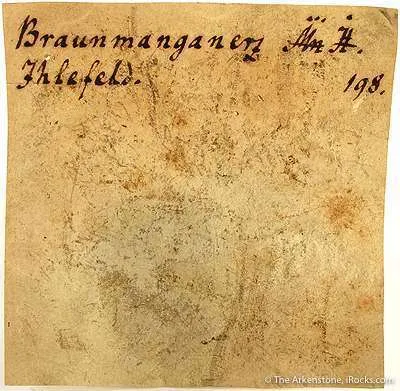 Braunmanganerz M⃛n Ḣ.
Jhlefeld. 198.
© The Arkenstone, iRocks.com